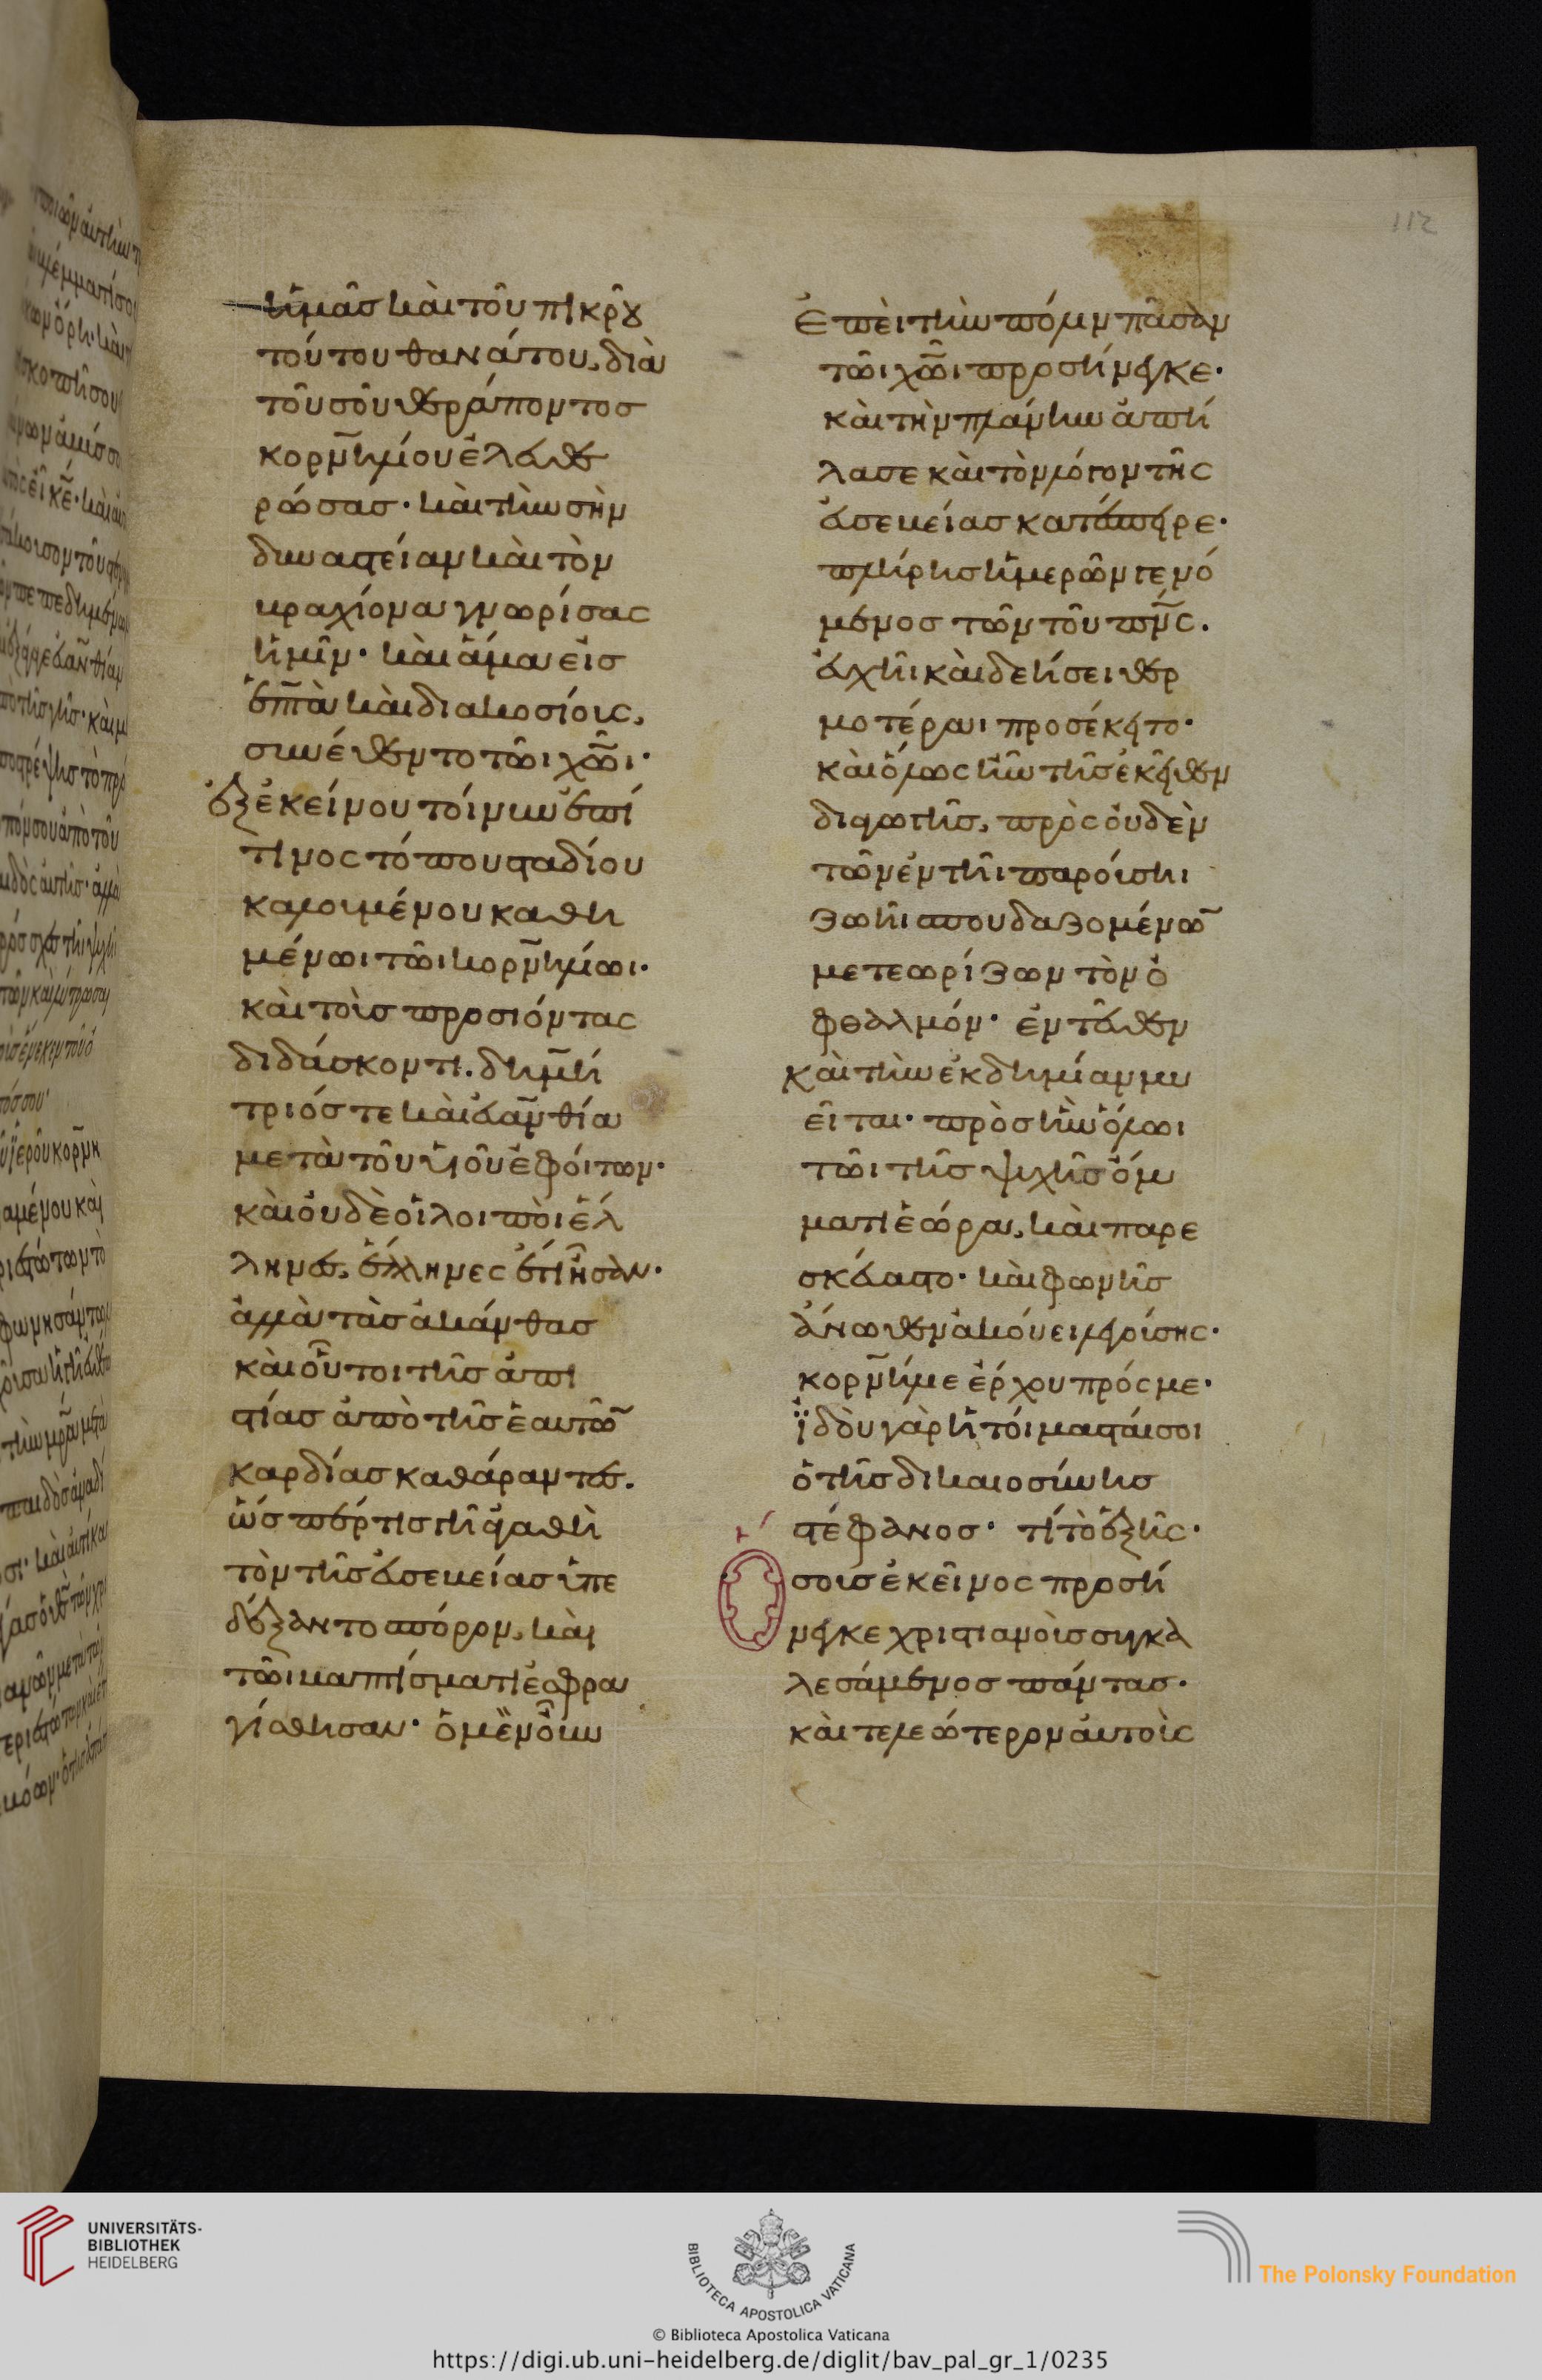 ἡμᾶς καὶ τοῦ πικροῦ
τούτου θανάτου, διὰ
τοῦ σοῦ θεράποντος
κορνηλίου ἐλευθε
ρώσας· καὶ τὴν σὴν
δυναστείαν καὶ τὸν
βραχίονα γνωρίσας
ἡμῖν· καὶ ἅμα εἰς
ἑπτὰ καὶ διακοσίους,
συνέθεντο τῶι χῶι·
ἐξ ἐκείνου τοίνυν ἐπί
τινος τόπου σταδίου
καλουμένου καθη
μένωι τῶι κορνηλίωι·
καὶ τοὺς προσιόντας
διδάσκοντι. δημή
τριός τε καὶ εὐανθία
μετὰ τοῦ υἱοῦ ἐφοίτων·
καὶ οὐδὲ οἱ λοιποὶ ἕλ
ληνες, ἕλληνες ἔτι ἦσαν·
ἀλλὰ τὰς ἀκάνθας
καὶ οὗτοι τῆς ἀπι
στίας ἀπὸ τῆς ἑαυτῶν
καρδίας καθάραντες.
ὥσπερ τις γῆ ἀγαθὴ
τὸν τῆς εὐσεβείας ὑπε
δέξαντο σπόρον, καὶ
τῶι βαπτίσματι ἐσφρα
γίσθησαν· ὁ μὲν οὖν
Ἐπεὶ τὴν πόλιν πᾶσαν
τῶι χῶι προσήνεγκε·
καὶ τὴν πλάνην ἀπή
λασε καὶ τὸν λόγον τῆς
εὐσεβείας κατέσπειρε·
πλήρης ἡμερῶν γενό
μενος τῶν τοῦ πνς.
εὐχῆι καὶ δεήσει θερ
μοτέραι προσέκειτο·
καὶ ὅλως ἦν τῆς ἐκεῖθεν
βιοτῆς, πρὸς οὐδὲν
τῶν ἐν τῆι παρούσηι
ζωῆι σπουδαζομένων
μετεωρίζων τὸν ὀ
φθαλμόν· ἐντεῦθεν
καὶ τὴν ἐκδημίαν μυ
εῖται· πρὸς ἣν ὅλωι
τῶι τῆς ψυχῆς ὄμ
ματι ἑώρα, καὶ παρε
σκεύαστο· καὶ φωνῆς
ἄνωθεν ἀκούει λεγούσης·
κορνήλιε ἔρχου πρός με·
ἰδοὺ γὰρ ἡτοίμασταί σοι
ὁ τῆς δικαιοσύνης
στέφανος· τί τὸ ἑξῆς·
Ὅσους ἐκεῖνος προσή
νεγκε χριστιανοὺς συγκα
λεσάμενος πάντας·
καὶ τελεώτερον αὐτοῖς
112
UNIVERSITÄTS-
BIBLIOTHEK
HEIDELBERG
BIBLIOTECA APOSTOLICA VATICANA
The Polonsky Foundation
© Biblioteca Apostolica Vaticana
https://digi.ub.uni-heidelberg.de/diglit/bav_pal_gr_1/0235